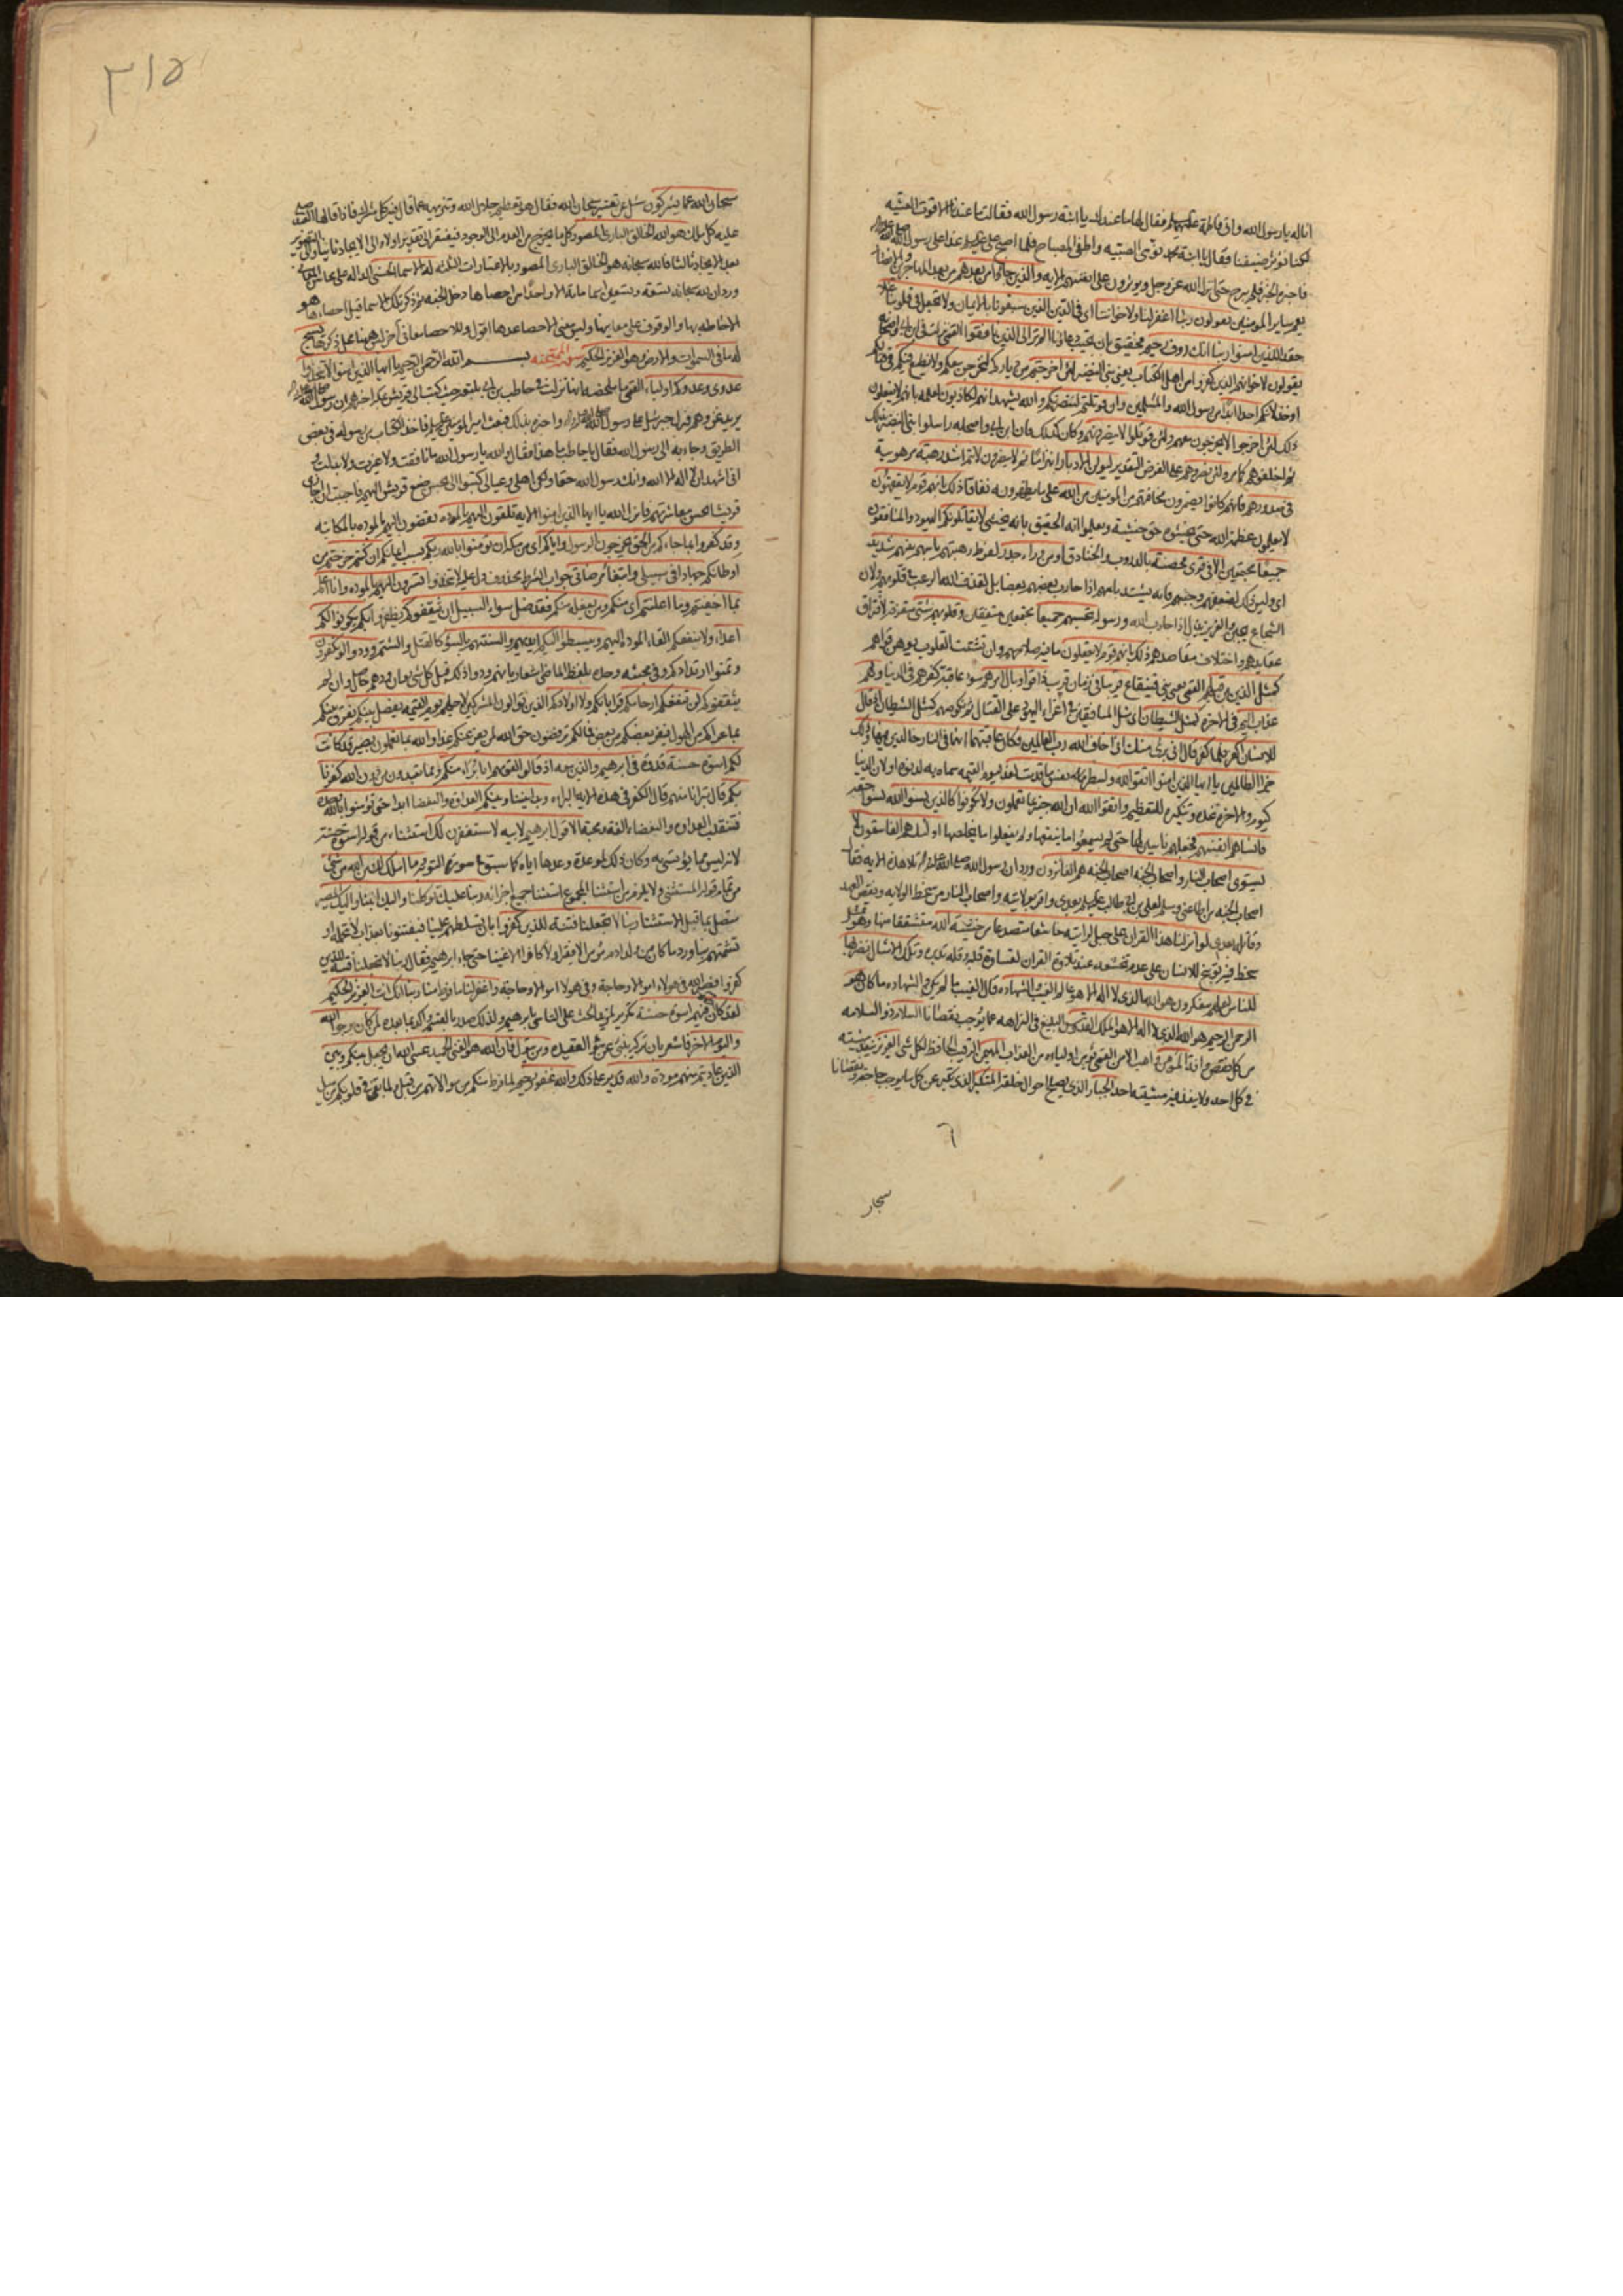 انا له يا رسول الله واتى فاطمة عليها فقال لها ما عندك يا ابنة رسول الله فقالت ما عندنا الا قوت العشية
لكنا نؤثر ضيفنا فقال يا ابنة محمد نومى الصبيه واطفى المصباح فلما اصبح على عليه غدا على رسول الله
فاخبره الخبر فلم يبرح حتى انزل الله عز وجل ويؤثرون على انفسهم الايه والذين جاؤا من بعدهم من بعد المهاجرين والانصار
يعم ساير المومنين يقولون ربنا اغفر لنا ولاخواننا اى فى الدين الذين سبقونا بالايمان ولا تجعل فى قلوبنا غلا
حقدا للذين امنوا ربنا انك رؤف رحيم فحقيق بان تجيب دعاءنا الم تر الى الذين نافقوا القمى نزلت فى ابن ابى واصحابه
يقولون لاخوانهم الذين كفروا من اهل الكتاب يعنى بنى النضير لئن اخرجتم من دياركم لنخرجن معكم ولا نطيع فيكم فى قتالكم
او خذلانكم احدا ابدا من رسول الله والمسلمين وان قوتلتم لننصرنكم والله يشهد انهم لكاذبون لعلمه بانهم لا يفعلون
ذلك لئن اخرجوا لا يخرجون معهم ولئن قوتلوا لا ينصرونهم وكان كذلك فان ابن ابى واصحابه راسلوا بنى النضير بذلك
ثم اخلفوهم كما مر ولئن نصروهم على الفرض والتقدير ليولن الادبار انهزاما ثم لا ينصرون لانتم اشد رهبة مرهوبية
فى صدورهم فانهم كانوا يضمرون مخافتهم من المومنين من الله على ما يظهرونه نفاقا ذلك بانهم قوم لا يفقهون
لا يعلمون عظمة الله حتى يخشوه حق خشيته ويعلموا انه الحقيق بانه يخشى لا يقاتلونكم اليهود والمنافقون
جميعا مجتمعين الا فى قرى محصنة بالدروب والخنادق او من وراء جدر لفرط رهبتهم باسهم بينهم شديد
اى وليس ذلك لضعفهم وجبنهم فانه يشتد باسهم اذا حارب بعضهم بعضا بل لقذف الله الرعب فى قلوبهم ولان
الشجاع يجبن والعزيز يذل اذا حارب الله ورسوله تحسبهم جميعا مجتمعين متفقين وقلوبهم شتى متفرقة لافتراق
عقايدهم واختلاف مقاصدهم ذلك بانهم قوم لا يعقلون ما فيه صلاحهم وان تشتت القلوب يوهن قواهم
كمثل الذين من قبلهم القمى يعنى بنى قينقاع قريبا فى زمان قريب ذاقوا وبال امرهم سوء عاقبة كفرهم فى الدنيا ولهم
عذاب اليم فى الاخرة كمثل الشيطان اى مثل المنافقين فى اغراء اليهود على القتال ثم نكوصهم كمثل الشيطان اذ قال
للانسان اكفر فلما كفر قال انى برئ منك انى اخاف الله رب العالمين فكان عاقبتهما انهما فى النار خالدين فيها وذلك
جزاء الظالمين يا ايها الذين امنوا اتقوا الله ولتنظر نفس ما قدمت لغد ليوم القيمه سماه به لدنوه او لان الدنيا
كيوم والاخرة غده وتنكيره للتعظيم واتقوا الله ان الله خبير بما تعملون ولا تكونوا كالذين نسوا الله نسوا حقه
فانساهم انفسهم فجعلهم ناسين لها حتى لم يسمعوا ما ينفعها ولم يفعلوا ما يخلصها اولئك هم الفاسقون لا
يستوى اصحاب النار واصحاب الجنة اصحاب الجنة هم الفائزون ورد ان رسول الله صلى الله عليه واله تلا هذه الايه فقال
اصحاب الجنه من اطاعنى وسلم لعلى بن ابى طالب عليه بعدى واقر بولايته واصحاب النار من سخط الولايه ونقض العهد
وقاتله بعدى لو انزلنا هذا القران على جبل لرايته خاشعا متصدعا من خشية الله متشققا منها وهو تمثيل
فيه توبيخ للانسان على عدم تخشعه عند تلاوة القران لقساوة قلبه وقلة تدبره وتلك الامثال نضربها
للناس لعلهم يتفكرون هو الله الذى لا اله الا هو عالم الغيب والشهاده قال الغيب ما لم يكن والشهاده ما كان هو
الرحمن الرحيم هو الله الذى لا اله الا هو الملك القدوس البليغ فى النزاهه عما يوجب نقصانا السلام ذو السلامه
من كل نقص وافه المؤمن واهب الامن القمى يؤمن اولياءه من العذاب المهيمن الرقيب الحافظ لكل شئ العزيز ينفذ مشيته
فى كل احد ولا ينفذ فيه مشيته احد الجبار الذى يصلح احوال خلقه المتكبر الذى تكبر عن كل ما يوجب حاجة او نقصانا
٦
سبحان
٣١٥
سبحان الله عما يشركون سئل عن تفسير سبحان الله فقال هو تعظيم جلال الله وتنزيهه عما قال فيه كل مشرك فاذا قالها العبد صلى
عليه كل ملك هو الله الخالق البارئ المصور كل ما يخرج من العدم الى الوجود فيفتقر الى تقدير اولا والى الايجاد ثانيا والى التصوير
بعد الايجاد ثالثا فالله سبحانه هو الخالق البارئ المصور بالاعتبارات الثلثه له الاسماء الحسنى الداله على محاسن المعانى
ورد ان لله سبحانه تسعة وتسعين اسما مائة الا واحدا من احصاها دخل الجنه ثم ذكر تلك الاسما قيل احصاءها هو
الاحاطه بها والوقوف على معانيها وليس معنى الاحصا عدها اقول وللاحصا معانى اخر ليس هنا محل ذكرها يسبح
له ما فى السموات والارض وهو العزيز الحكيم سورة الممتحنه بسم الله الرحمن الرحيم يا ايها الذين امنوا لا تتخذوا
عدوى وعدوكم اولياء القمى ما ملخصه انها نزلت فى حاطب بن ابى بلتعه حيث كتب الى قريش بمكه اخبرهم ان رسول الله
يريد غزوهم فنزل جبرئيل على رسول الله واخبره بذلك فبعث امير المؤمنين عليه فاخذ الكتاب من رسوله فى بعض
الطريق وجاء به الى رسول الله فقال يا حاطب ما هذا فقال والله يا رسول الله ما نافقت ولا غيرت ولا بدلت و
انى اشهد ان لا اله الا الله وانك رسول الله حقا ولكن اهلى وعيالى كتبوا الى بحسن صنع قريش اليهم فاحببت ان اجازى
قريشا بحسن معاشرتهم فانزل الله يا ايها الذين امنوا الايه تلقون اليهم بالموده تفضون اليهم بالموده بالمكاتبه
وقد كفروا بما جاءكم من الحق يخرجون الرسول واياكم اى من مكه ان تومنوا بالله ربكم بسبب ايمانكم ان كنتم خرجتم من
اوطانكم جهادا فى سبيلى وابتغاء مرضاتى جواب الشرط محذوف دل عليه لا تتخذوا تسرون اليهم بالموده وانا اعلم
بما اخفيتم وما اعلنتم اى منكم ومن يفعله منكم فقد ضل سواء السبيل ان يثقفوكم يظفروا بكم يكونوا لكم
اعداء ولا ينفعكم القاء الموده اليهم ويبسطوا اليكم ايديهم والسنتهم بالسوء كالقتل والشتم وودوا لو تكفرون
وتمنوا ارتدادكم وفى مجيئه وحده بلفظ الماضى اشعار بانهم ودوا ذلك قبل كل شئ وان ودهم حاصل وان لم
يثقفوكم لن تنفعكم ارحامكم قراباتكم ولا اولادكم الذين توالون المشركين لاجلهم يوم القيمه يفصل بينكم يفرق بينكم
بما عراكم من الهول فيفر بعضكم من بعض فما لكم ترفضون حق الله لمن يفر عنكم غدا والله بما تعملون بصير قد كانت
لكم اسوة حسنة قدوة فى ابرهيم والذين معه اذ قالوا لقومهم انا براء منكم ومما تعبدون من دون الله كفرنا
بكم قال تبرانا منهم قال الكفر فى هذه الايه البراءه وبدا بيننا وبينكم العداوة والبغضاء ابدا حتى تؤمنوا بالله وحده
فتنقلب العداوه والبغضاء الفة ومحبة الا قول ابرهيم لابيه لاستغفرن لك استثناء من قوله اسوة حسنة
لانه ليس مما يؤتسى به وكان ذلك لموعدة وعدها اياه كما سبق فى سورة التوبه وما املك لك من الله من شئ
من تمام قوله المستثنى ولا يلزم من استثنا المجموع استثنا جميع اجزائه ربنا عليك توكلنا واليك انبنا واليك المصير
متصل بما قبل الاستثنا ربنا لا تجعلنا فتنة للذين كفروا بان تسلطهم علينا فيفتنونا بعذاب لا نتحمله او
كفروا فصير الله فى هولاء اموالا وحاجة وفى هولاء اموالا وحاجة واغفر لنا ما فرط منا ربنا انك انت العزيز الحكيم
لقد كان لكم فيهم اسوة حسنة تكرير لمزيد الحث على التاسى بابرهيم ولذلك صدر بالقسم واكد بما بعده لمن كان يرجوا الله
واليوم الاخر فاشعر بان تركه ينبئ عن سوء العقيده ومن يتول فان الله هو الغنى الحميد عسى الله ان يجعل بينكم وبين
الذين عاديتم منهم مودة والله قدير على ذلك والله غفور رحيم لما فرط منكم من موالاتهم من قبل ولما بقى فى قلوبكم من ميل